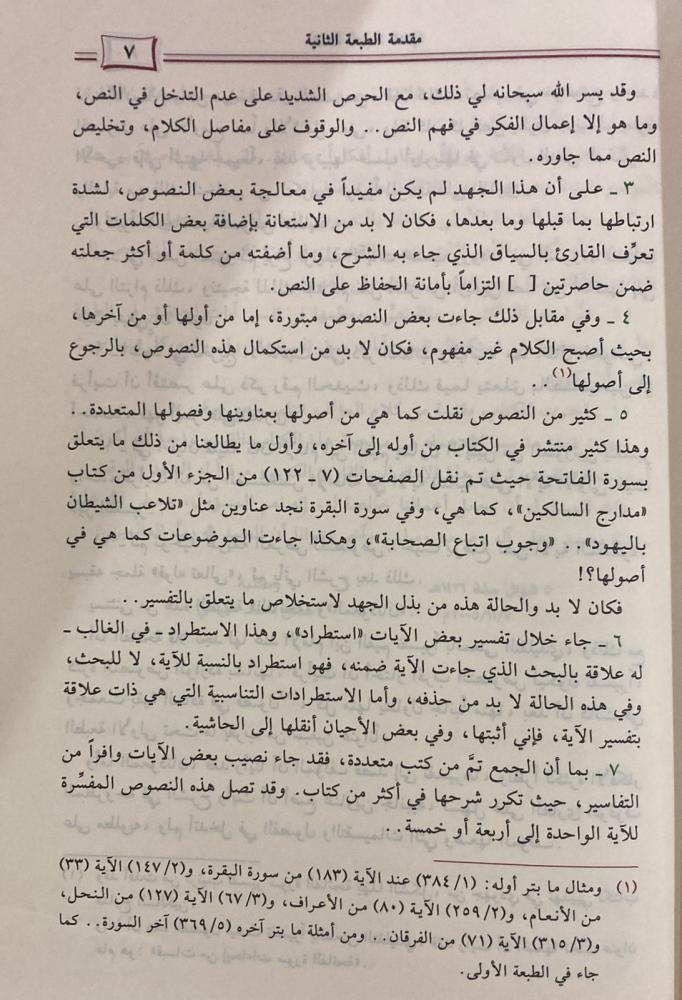 مقدمة الطبعة الثانية
٧
وقد يسر الله سبحانه لي ذلك، مع الحرص الشديد على عدم التدخل في النص،
وما هو إلا إعمال الفكر في فهم النص.. والوقوف على مفاصل الكلام، وتخليص
النص مما جاوره.
٣ ـ على أن هذا الجهد لم يكن مفيداً في معالجة بعض النصوص، لشدة
ارتباطها بما قبلها وما بعدها، فكان لا بد من الاستعانة بإضافة بعض الكلمات التي
تعرِّف القارئ بالسياق الذي جاء به الشرح، وما أضفته من كلمة أو أكثر جعلته
ضمن حاصرتين [ ] التزاماً بأمانة الحفاظ على النص.
٤ ـ وفي مقابل ذلك جاءت بعض النصوص مبتورة، إما من أولها أو من آخرها،
بحيث أصبح الكلام غير مفهوم، فكان لا بد من استكمال هذه النصوص، بالرجوع
إلى أصولها(١)..
٥ ـ كثير من النصوص نقلت كما هي من أصولها بعناوينها وفصولها المتعددة..
وهذا كثير منتشر في الكتاب من أوله إلى آخره، وأول ما يطالعنا من ذلك ما يتعلق
بسورة الفاتحة حيث تم نقل الصفحات (٧ ـ ١٢٢) من الجزء الأول من كتاب
«مدارج السالكين»، كما هي، وفي سورة البقرة نجد عناوين مثل «تلاعب الشيطان
باليهود».. «وجوب اتباع الصحابة»، وهكذا جاءت الموضوعات كما هي في
أصولها؟!
فكان لا بد والحالة هذه من بذل الجهد لاستخلاص ما يتعلق بالتفسير..
٦ ـ جاء خلال تفسير بعض الآيات «استطراد»، وهذا الاستطراد ـ في الغالب ـ
له علاقة بالبحث الذي جاءت الآية ضمنه، فهو استطراد بالنسبة للآية، لا للبحث،
وفي هذه الحالة لا بد من حذفه، وأما الاستطرادات التناسبية التي هي ذات علاقة
بتفسير الآية، فإني أثبتها، وفي بعض الأحيان أنقلها إلى الحاشية.
٧ ـ بما أن الجمع تمَّ من كتب متعددة، فقد جاء نصيب بعض الآيات وافراً من
التفاسير، حيث تكرر شرحها في أكثر من كتاب. وقد تصل هذه النصوص المفسِّرة
للآية الواحدة إلى أربعة أو خمسة..
(١) ومثال ما بتر أوله: (٣٨٤/١) عند الآية (١٨٣) من سورة البقرة، و(١٤٧/٢) الآية (٣٣)
من الأنعام، و(٢٥٩/٢) الآية (٨٠) من الأعراف، و(٦٧/٣) الآية (١٢٧) من النحل،
و(٣١٥/٣) الآية (٧١) من الفرقان.. ومن أمثلة ما بتر آخره (٣٦٩/٥) آخر السورة.. كما
جاء في الطبعة الأولى.